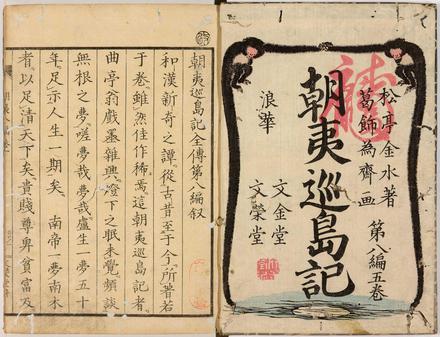 松亭金水著
葛飾為齊画
第八編五卷
朝夷巡島記
浪華
文金堂
文榮堂
朝夷巡島記全傳第八編叙
和漢新奇之譚從古昔至于今所著若
于卷雖然佳作稀焉這朝夷巡島記者
曲亭翁戲墨雜興燈下之眠未覺頻談
無根之夢嗟夢哉夢哉盧生一夢五十
年足示人生一期矣南帝一夢南木
者以足清天下矣貴賤尊卑貧富及